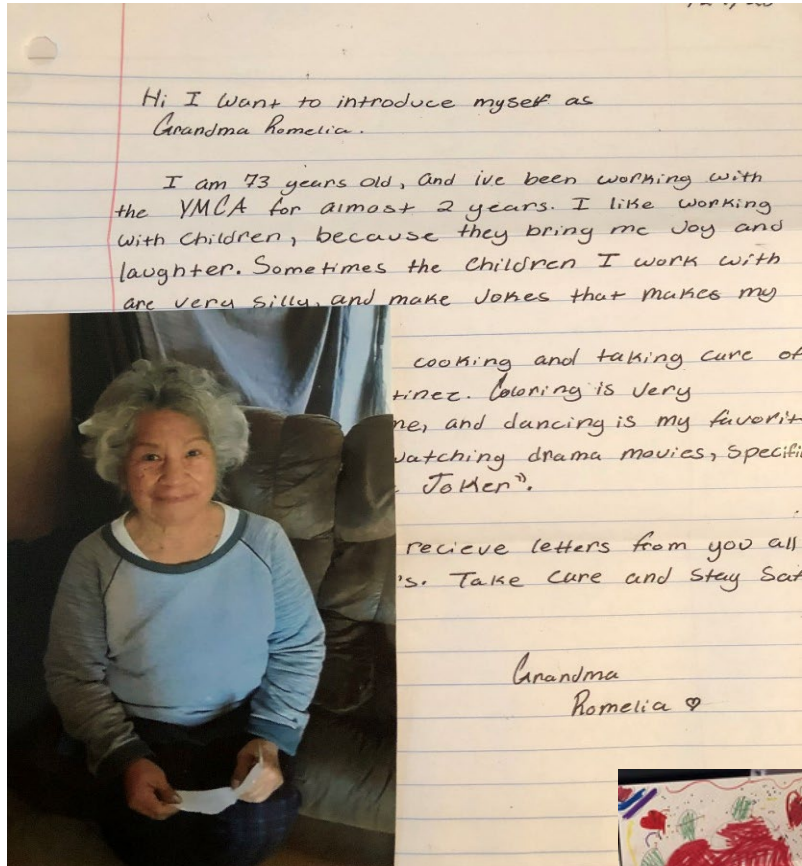 Hi I want to introduce myself as
Grandma Romelia.
I am 73 years old, and ive been working with
the YMCA for almost 2 years. I like working
with children, because they bring me Joy and
laughter. Sometimes the children I work with
are very silly, and make Jokes that makes my
cooking and taking care of
Coloring is very
and dancing is my
drama movies,
Joker".
recieve letters from you all
Take care and stay
Grandma
Romelia ♡